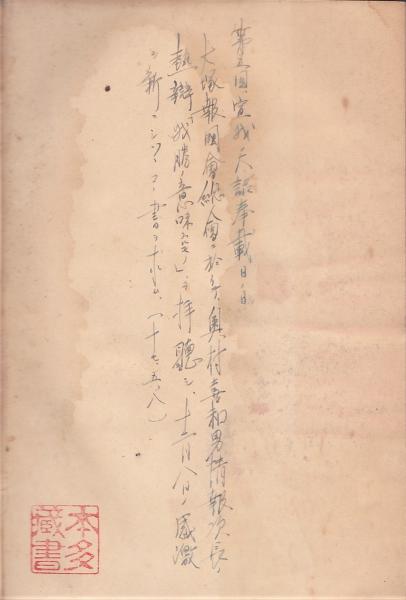 第五回宣戦ノ大詔奉戴日ノ日
大塚報国會総會ニ於テ、奥村喜和男情報次長ノ
熱辯「戦勝ノ意味」ヲ拝聴シ、十二月八日ノ感激
ヲ新ニシツヽ書ヲ
(十七、五、八)
本多
蔵書